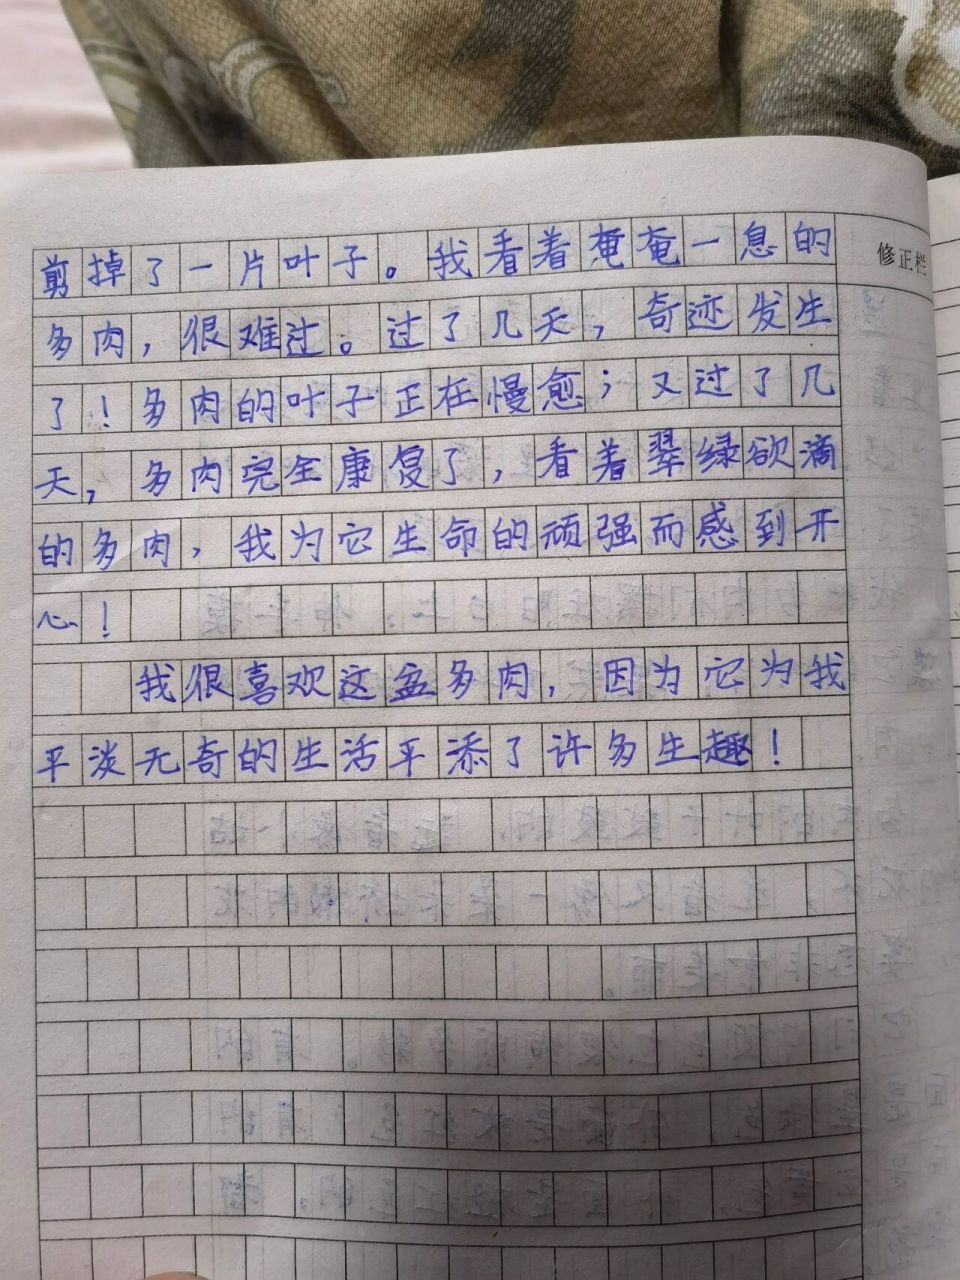 剪掉了一片叶子。我看着奄奄一息的
修正栏
多肉，很难过。过了几天，奇迹发生
了！多肉的叶子正在慢愈；又过了几
天，多肉完全康复了，看着翠绿欲滴
的多肉，我为它生命的顽强而感到开
心！
我很喜欢这盆多肉，因为它为我
平淡无奇的生活平添了许多生趣！